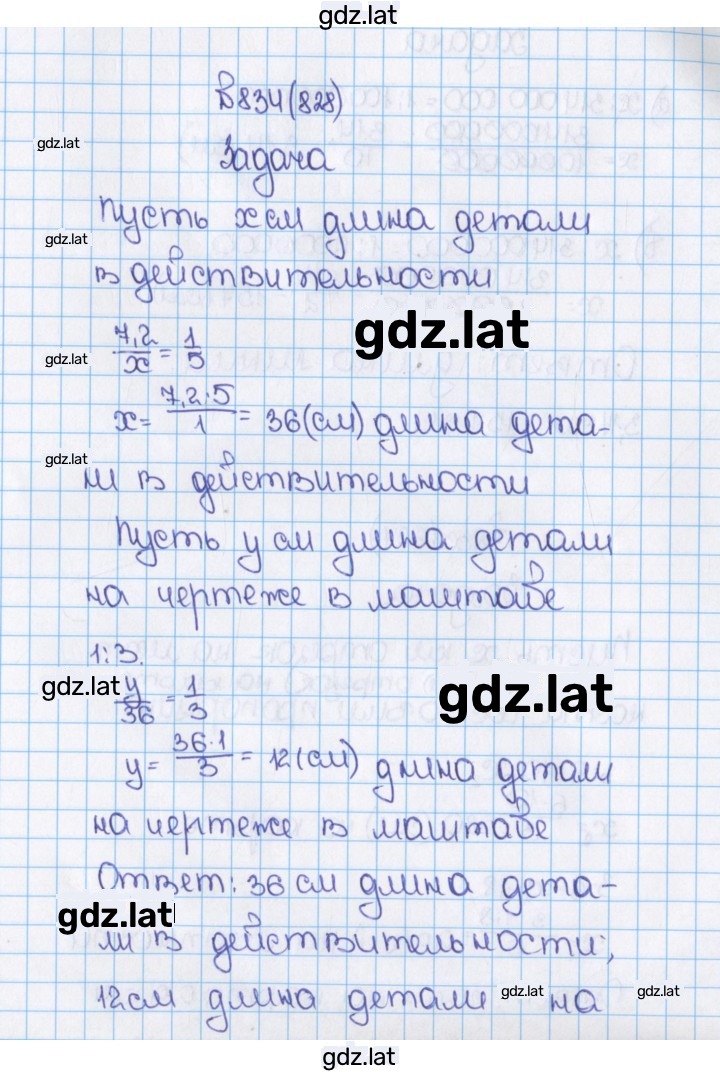 gdz.lat
В834(828)
gdz.lat
Задача
Пусть x см длина детали
gdz.lat
в действительности
7,2/x = 1/5
gdz.lat
gdz.lat
x= 7,2·5/1 = 36(см) длина дета-
gdz.lat
ли в действительности
Пусть y см длина детали
на чертеже в маштабе
1:3.
gdz.lat
y/36 = 1/3
gdz.lat
y= 36·1/3 = 12(см) длина детали
на чертеже в маштабе
Ответ: 36 см длина дета-
gdz.lat
ли в действительности;
12см длина детали на
gdz.lat
gdz.lat
gdz.lat